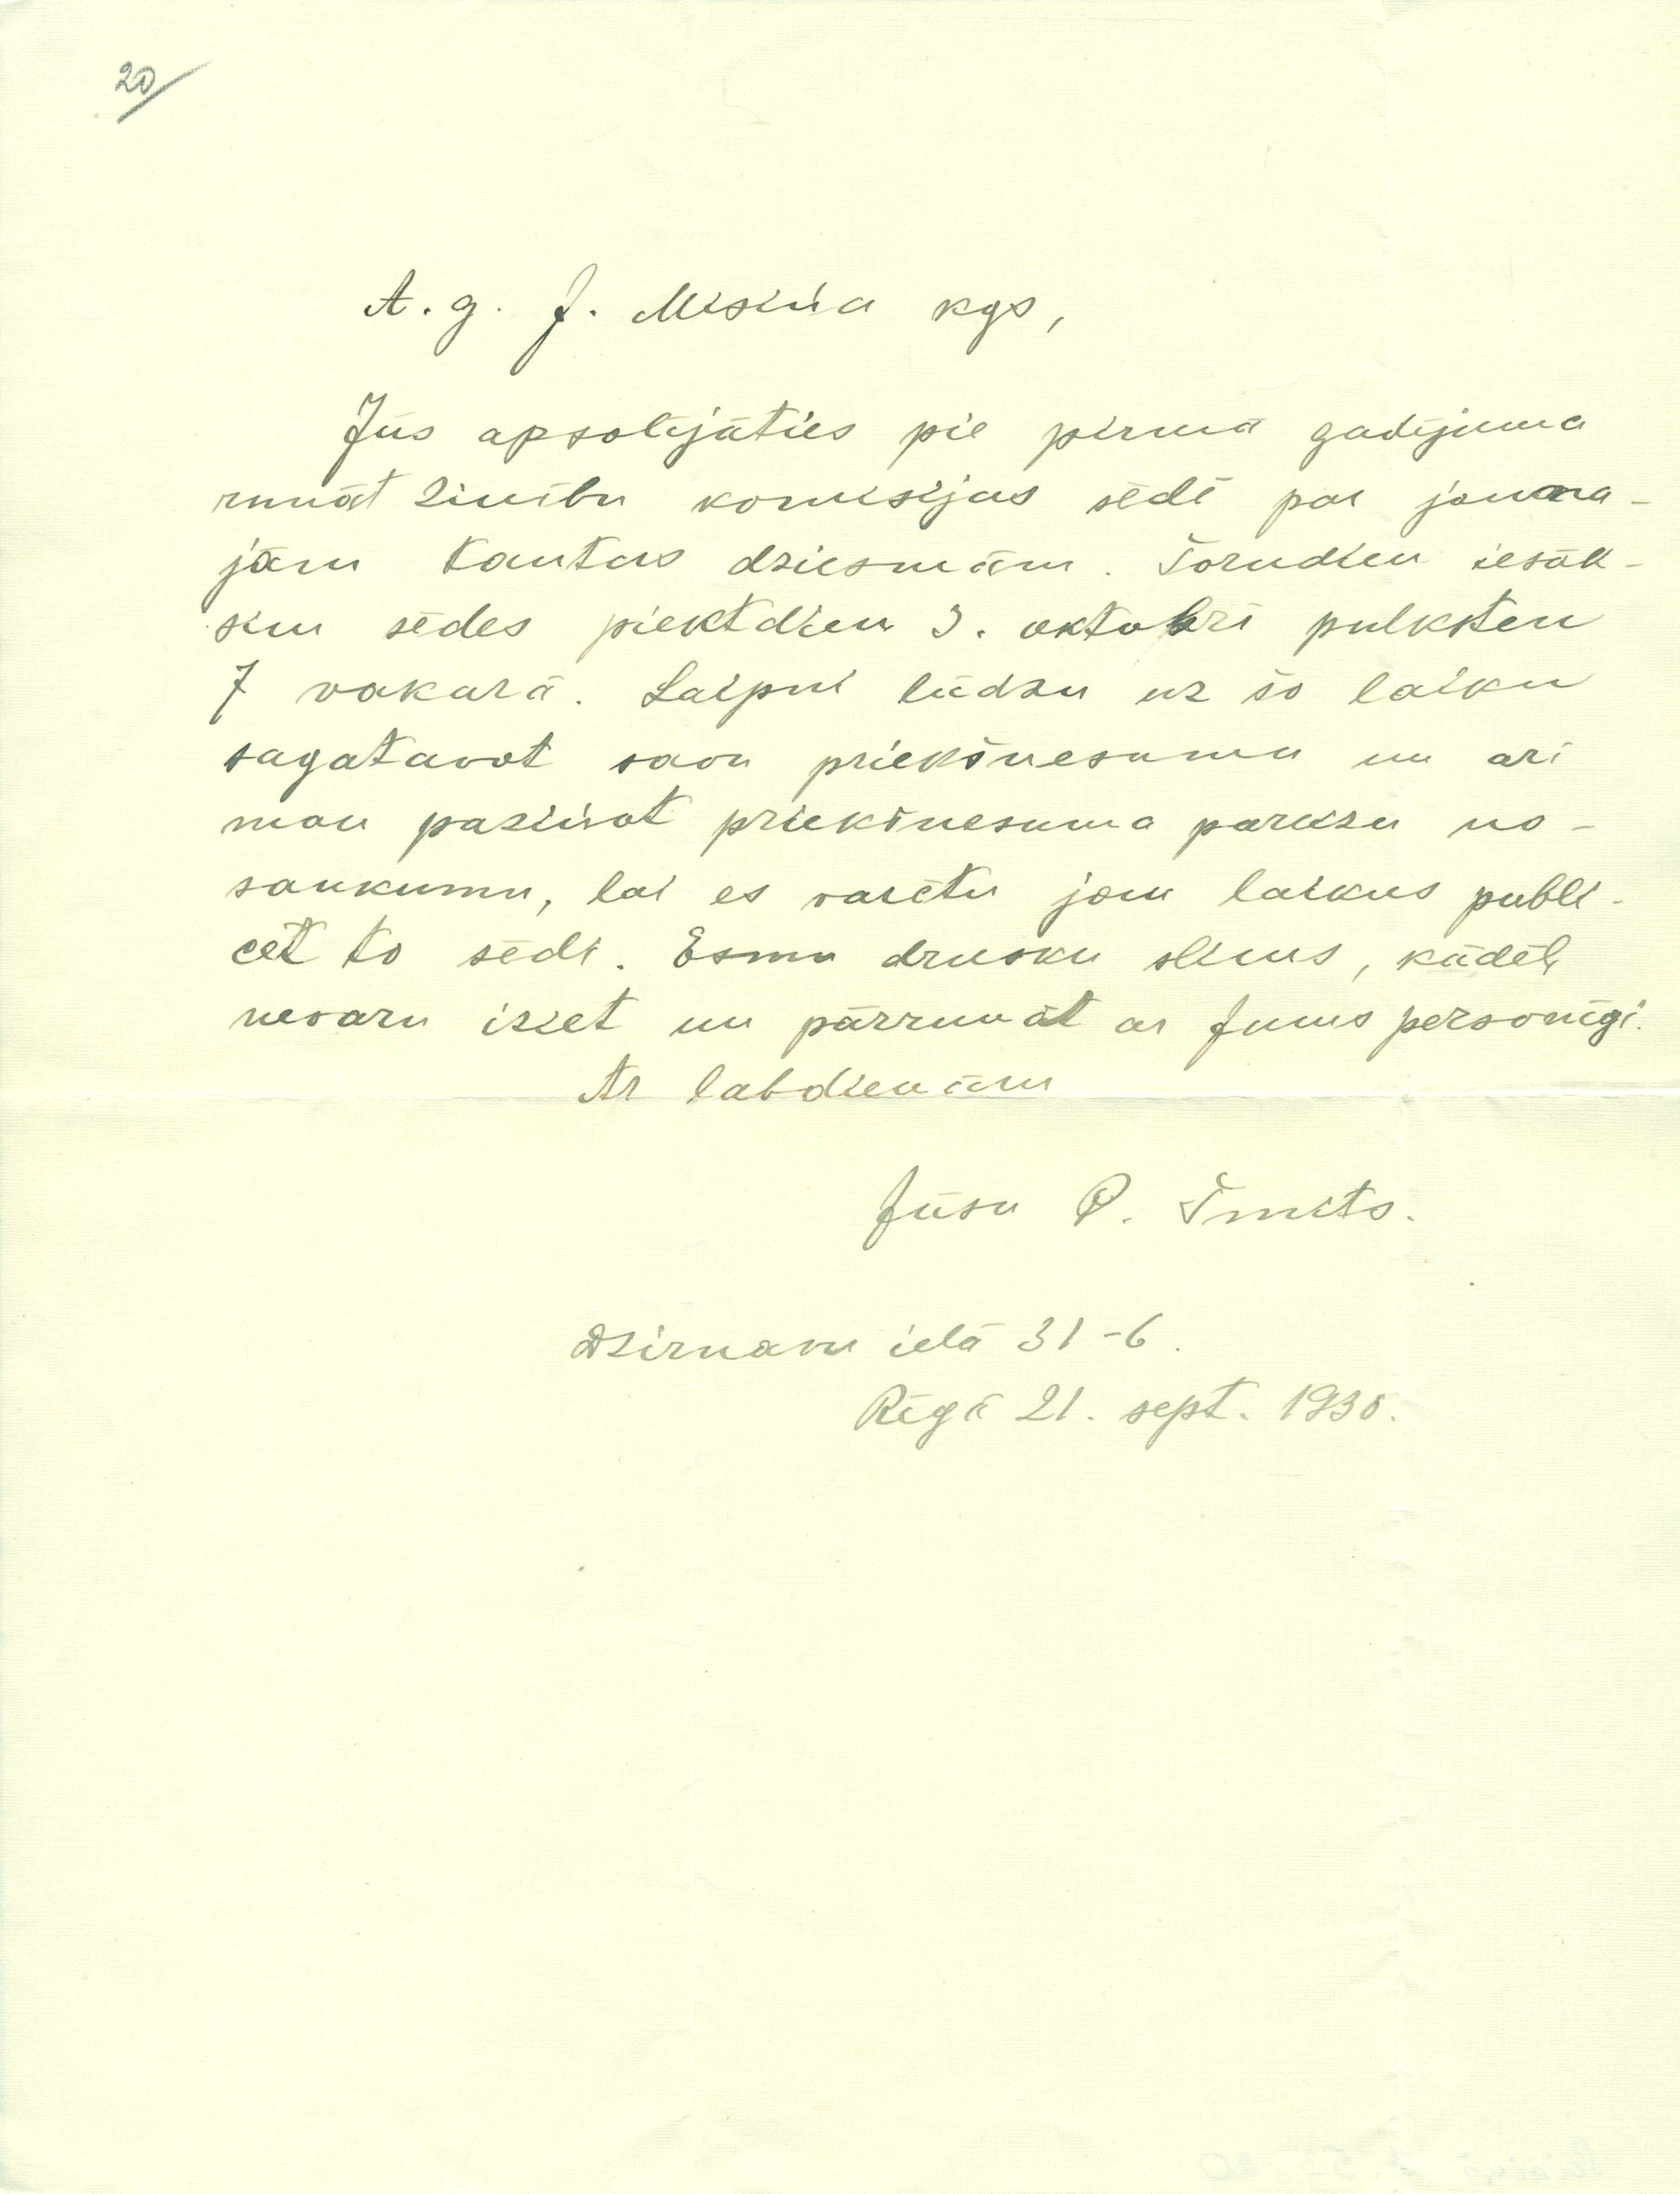 20/
A. g. J. Misiņa kgs,
Jūs apsolijāties pie pirmā gadijuma
runāt Zinību komisijas sēdē par jauna-
jām tautas dziesmām. Šorudeņ iesāk-
sim sēdes piektdien 3. oktobrī pulksten
7 vakarā. Laipni lūdzu uz šo laiku
sagatavot savu priekšnesumu un arī
man paziņot priekšnesuma pareizu no-
saukumu, lai es varētu jau laikus publi-
cēt to sēdi. Esmu drusku slims, kādēļ
nevaru iziet un pārrunāt ar Jums personīgi.
Ar labdienām
Jūsu P. Šmits.
Dzirnavu ielā 31-6.
Rīgā 21. sept. 1930.